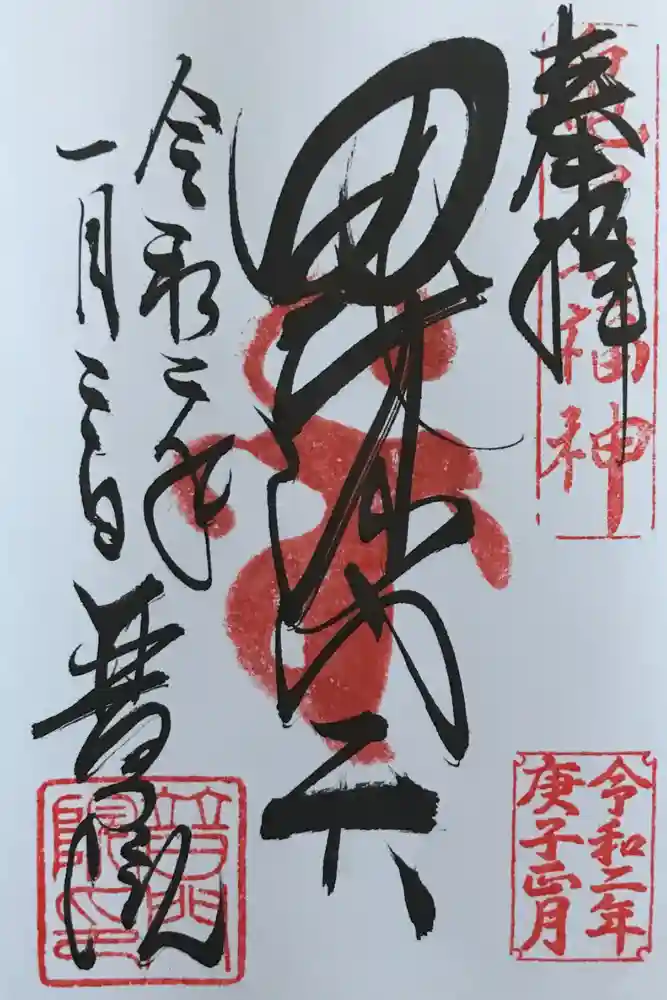 奉拝
福神
毘沙門天
令和二年
一月三日
普門院
普門
院印
令和二年
庚子正月